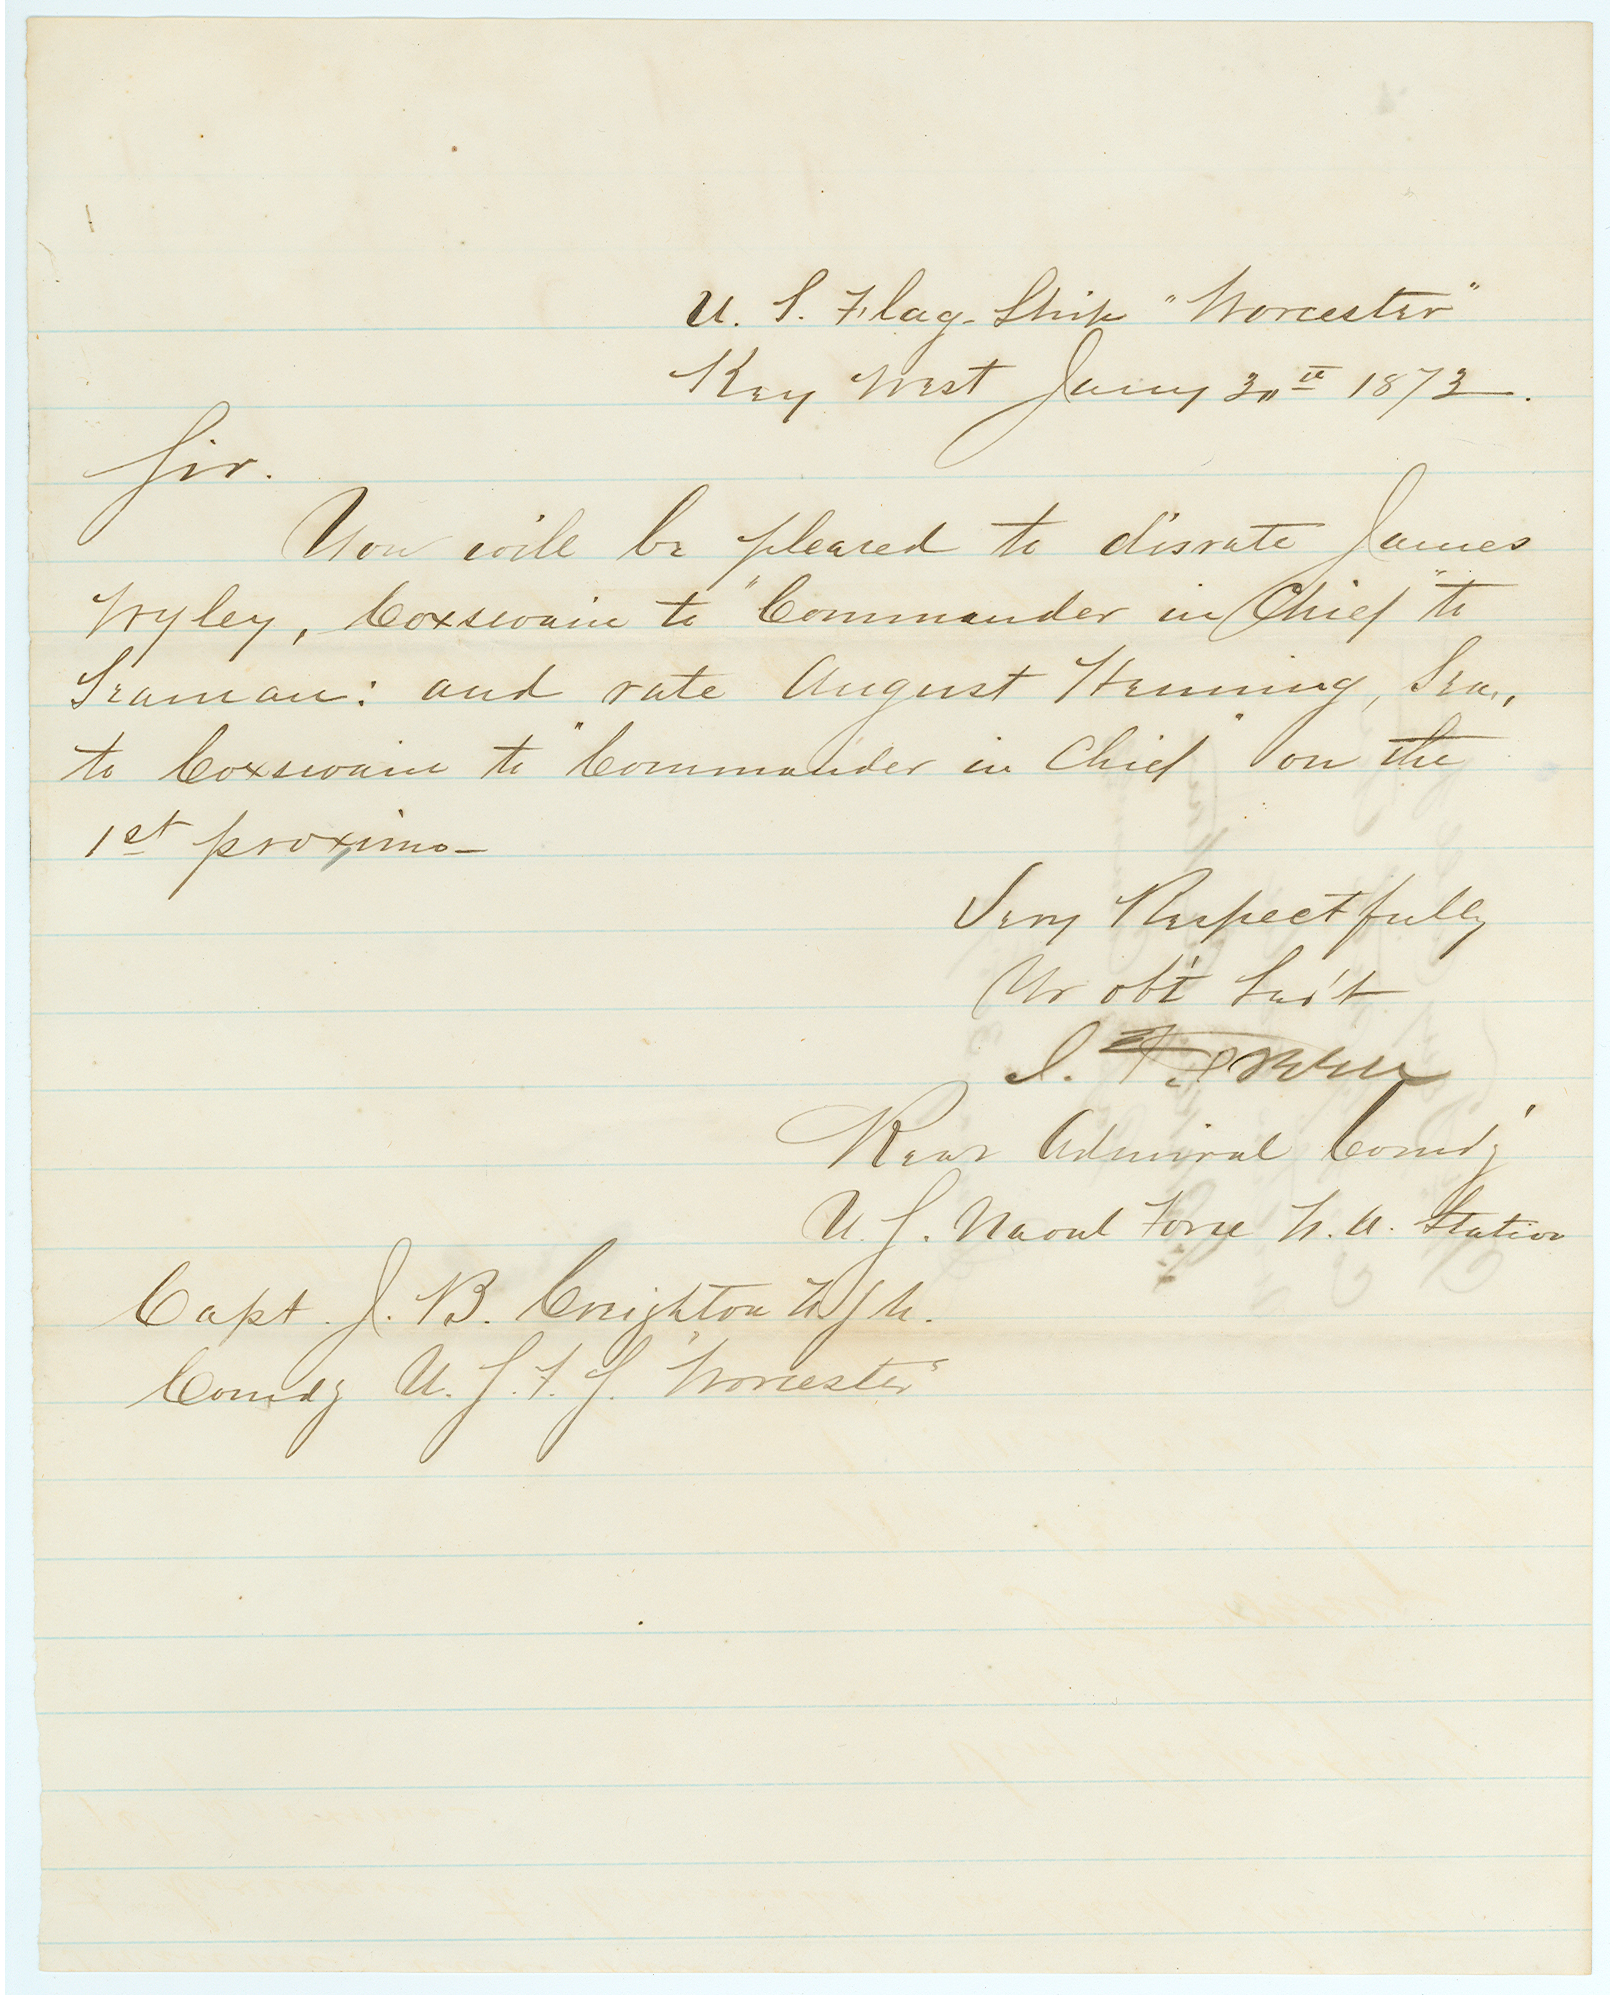 U. S. Flag-Ship "Worcester"
Key West Jany 30th 1873.
Sir.
You will be pleased to disrate James
Wyley, Coxswain to "Commander in Chief" to
Seaman: and rate August Henning, Sea.,
to Coxswain to "Commander in Chief" on the
1st proximo—
Very Respectfully
Yr obt Serv't
J. F. Green
Rear Admiral Comd'g
U. S. Naval Force N. A. Station
Capt. J. B. Creighton U.S.N.
Comdg U. S. F. S. "Worcester"